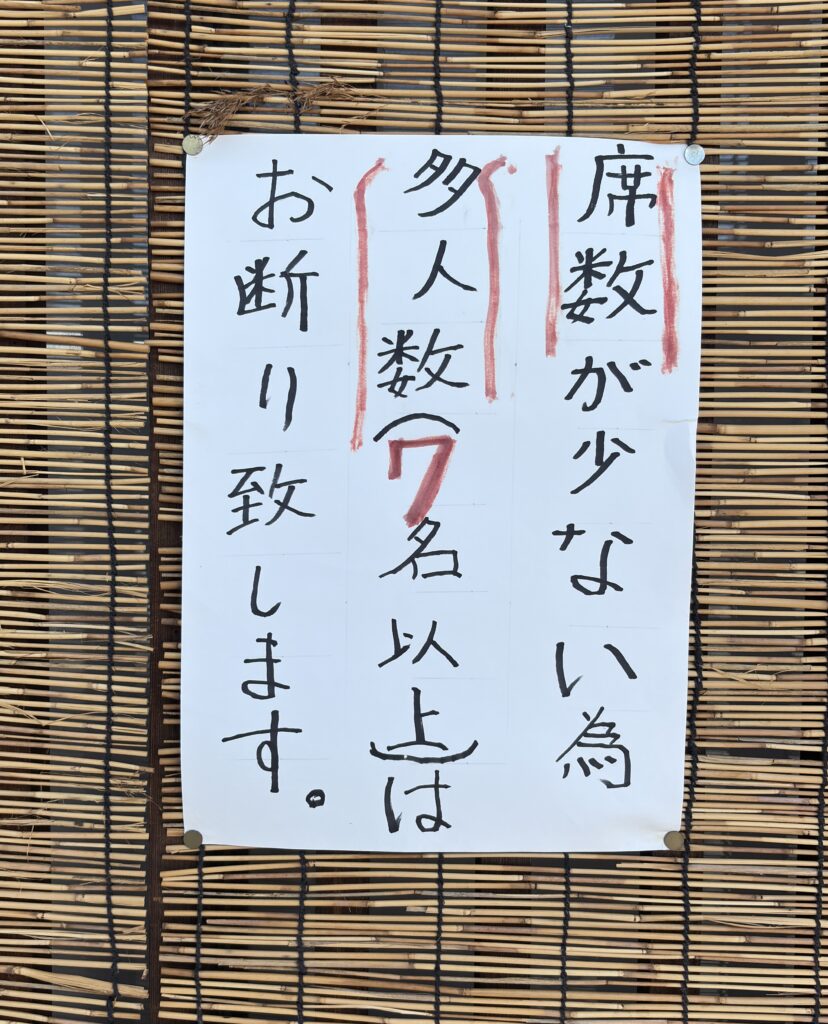 席数が少ない為
多人数(7名以上)は
お断り致します。